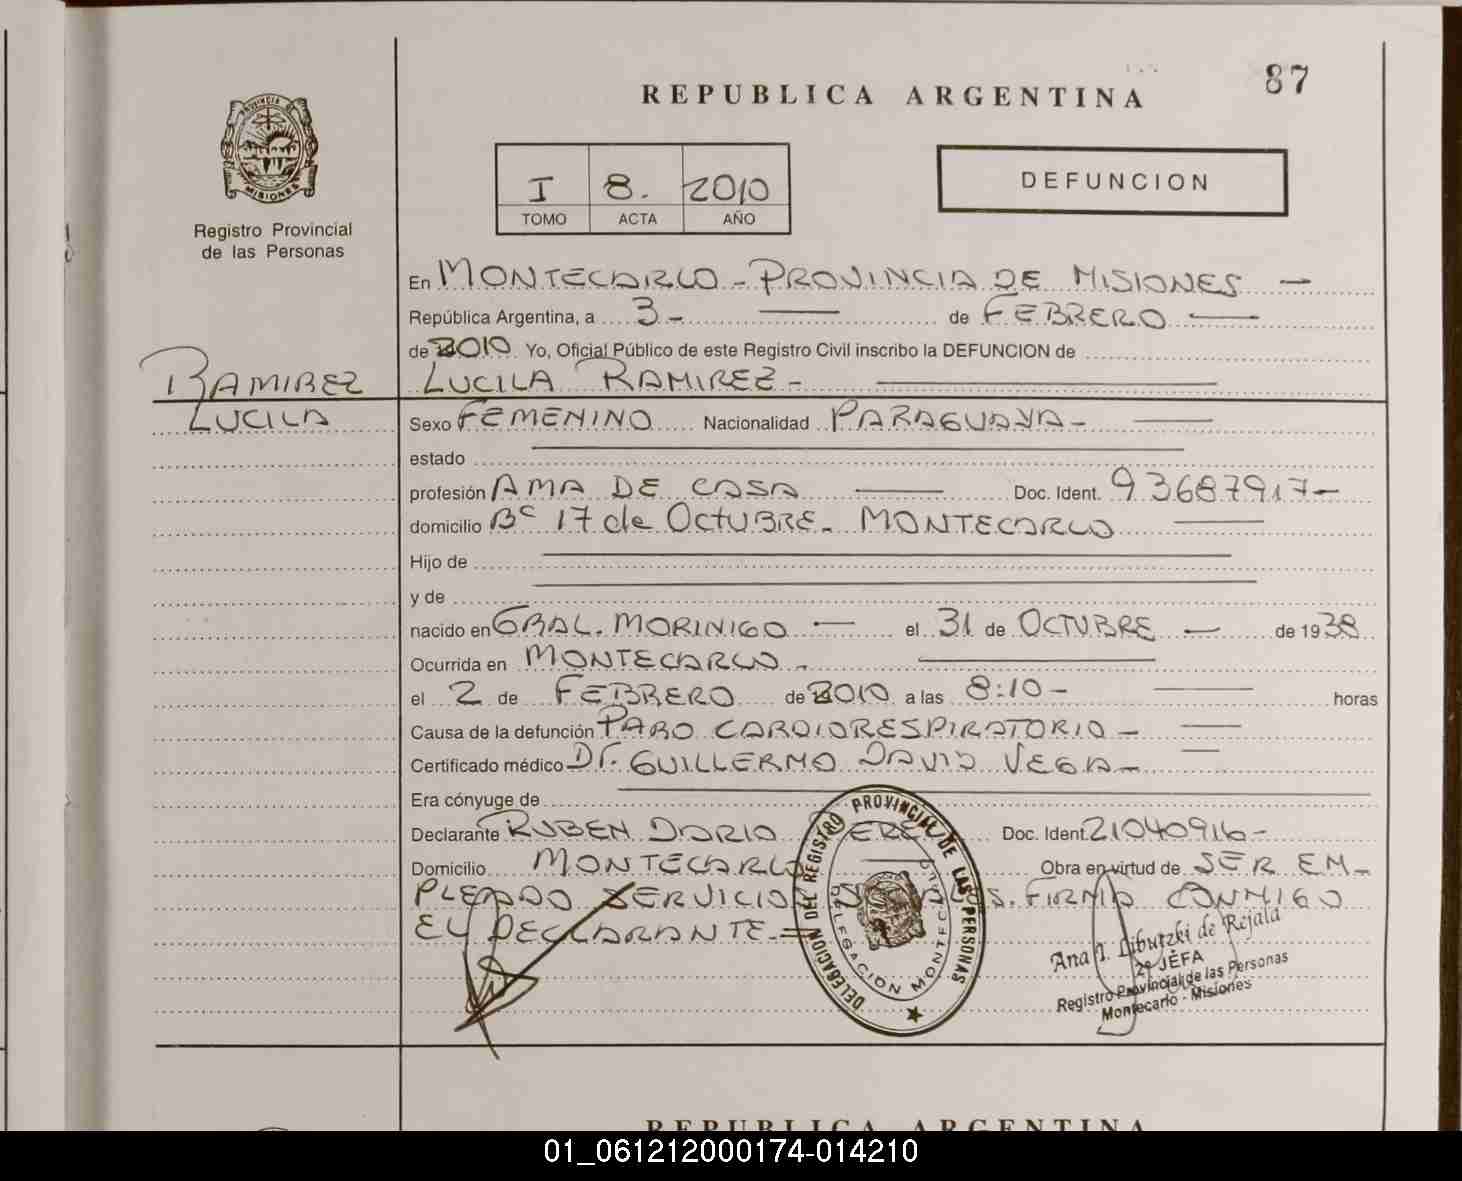 87
REPUBLICA ARGENTINA
PROVINCIA DE
MISIONES
Registro Provincial
de las Personas
I 8. 2010
TOMO ACTA AÑO
DEFUNCION
En MONTECARLO - PROVINCIA DE MISIONES —
República Argentina, a 3 - — de FEBRERO —
de 2010 Yo, Oficial Público de este Registro Civil inscribo la DEFUNCION de
LUCILA RAMIREZ -
RAMIREZ
LUCILA
Sexo FEMENINO Nacionalidad PARAGUAYA -
estado
profesión AMA DE CASA — Doc. Ident. 93687917 -
domicilio Bº 17 de OCTUBRE - MONTECARLO
Hijo de
y de
nacido en GRAL. MORINIGO — el 31 de OCTUBRE — de 1938
Ocurrida en MONTECARLO -
el 2 de FEBRERO de 2010 a las 8:10 - horas
Causa de la defunción PARO CARDIORESPIRATORIO -
Certificado médico Dr. GUILLERMO DAVID VEGA -
Era cónyuge de
Declarante RUBEN DARIO Doc. Ident. 21040916 -
Domicilio MONTECARLO Obra en virtud de SER EM-
PLEADO SERVICIO FIRMA CONMIGO
EL DECLARANTE.=
DELEGACION DEL REGISTRO PROVINCIAL DE LAS PERSONAS
DELEGACION MONTECARLO
Ana I. Libutzki de Rejala
2º JEFA
Registro Provincial de las Personas
Montecarlo - Misiones
REPUBLICA ARGENTINA
01_061212000174-014210